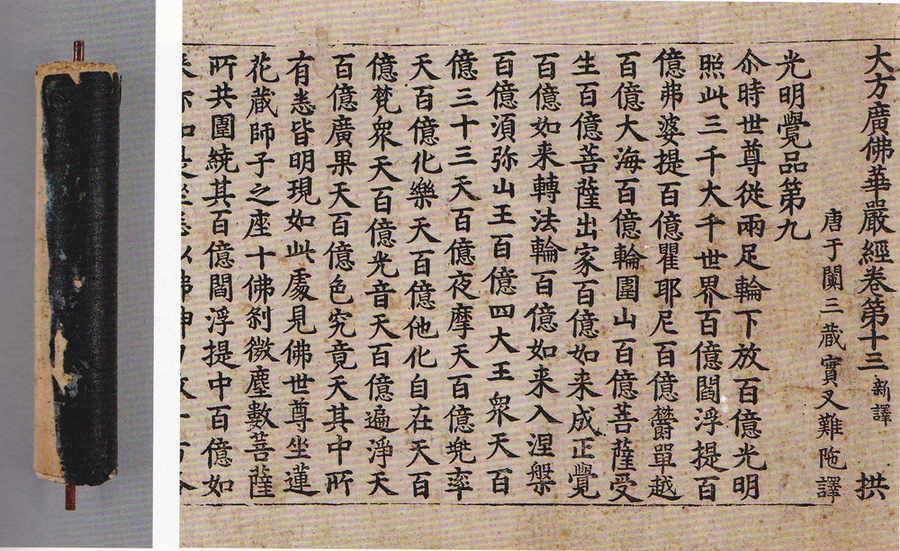 大方廣佛華嚴經卷第十三 新譯 拱
唐于闐三藏實叉難陁譯
光明覺品第九
尒時世尊從兩足輪下放百億光明
照此三千大千世界百億閻浮提百
億弗婆提百億瞿耶尼百億欝單越
百億大海百億輪圍山百億菩薩受
生百億菩薩出家百億如来成正覺
百億如来轉法輪百億如来入涅槃
百億須弥山王百億四大王衆天百
億三十三天百億夜摩天百億兠率
天百億化樂天百億他化自在天百
億梵衆天百億光音天百億遍淨天
百億廣果天百億色究竟天其中所
有悉皆明現如此處見佛世尊坐蓮
花藏師子之座十佛剎微塵數菩薩
所共圍繞其百億閻浮提中百億如